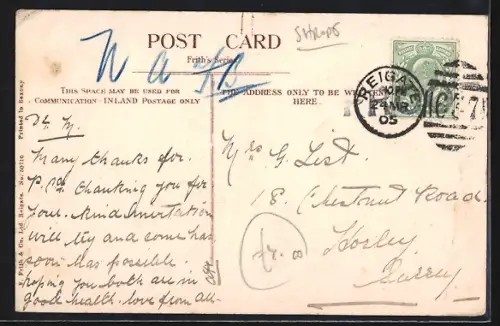 Shrops
POST CARD
Frith's Series
THIS SPACE MAY BE USED FOR
COMMUNICATION - INLAND POSTAGE ONLY
THE ADDRESS ONLY TO BE WRITTEN
HERE.
REIGATE
24 MR
05
Many thanks for
p.pd thanking you for
your kind invertation
will try and come has
soon Has possible.
hoping you both are in
good health. love from all-
Mrs G. List.
18. Chestnut Road.
Horley
Surrey
Printed in Saxony
Frith & Co., Ltd. Reigate.